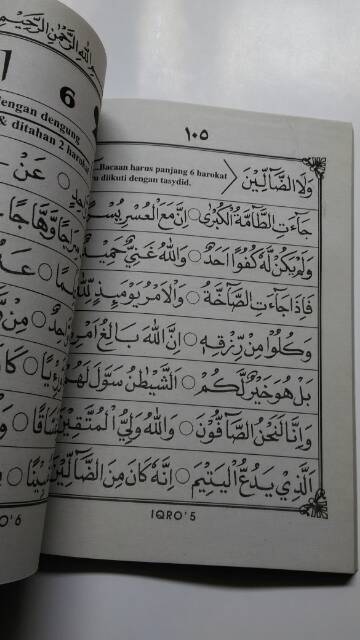 ١٠٥
وَلَا الضَّآلِّيْنَ
Bacaan harus panjang 6 harokat
diikuti dengan tasydid.
جَآءَتِ الطَّآمَّةُ الْكُبْرٰى ○ اِنَّ مَعَ الْعُسْرِ يُسْرًا
وَلَمْ يَكُنْ لَّهٗ كُفُوًا اَحَدٌ ○ وَاللّٰهُ غَنِيٌّ حَمِيْدٌ
فَاِذَا جَآءَتِ الصَّآخَّةُ ○ وَالْاَمْرُ يَوْمَئِذٍ لِّلّٰهِ
وَكُلُوْا مِنْ رِّزْقِهٖ ○ اِنَّ اللّٰهَ بَالِغُ اَمْرِهٖ
بَلْ هُوَ خَيْرٌ لَّكُمْ ○ اَلشَّيْطٰنُ سَوَّلَ لَهُمْ
وَاِنَّا لَنَحْنُ الصَّآفُّوْنَ ○ وَاللّٰهُ وَلِيُّ الْمُتَّقِيْنَ
اَلَّذِيْ يَدُعُّ الْيَتِيْمَ ○ اِنَّهٗ كَانَ مِنَ الضَّآلِّيْنَ
IQRO'5
بِسْمِ اللّٰهِ الرَّحْمٰنِ الرَّحِيْمِ
6
dengan dengung
& ditahan 2 harokat